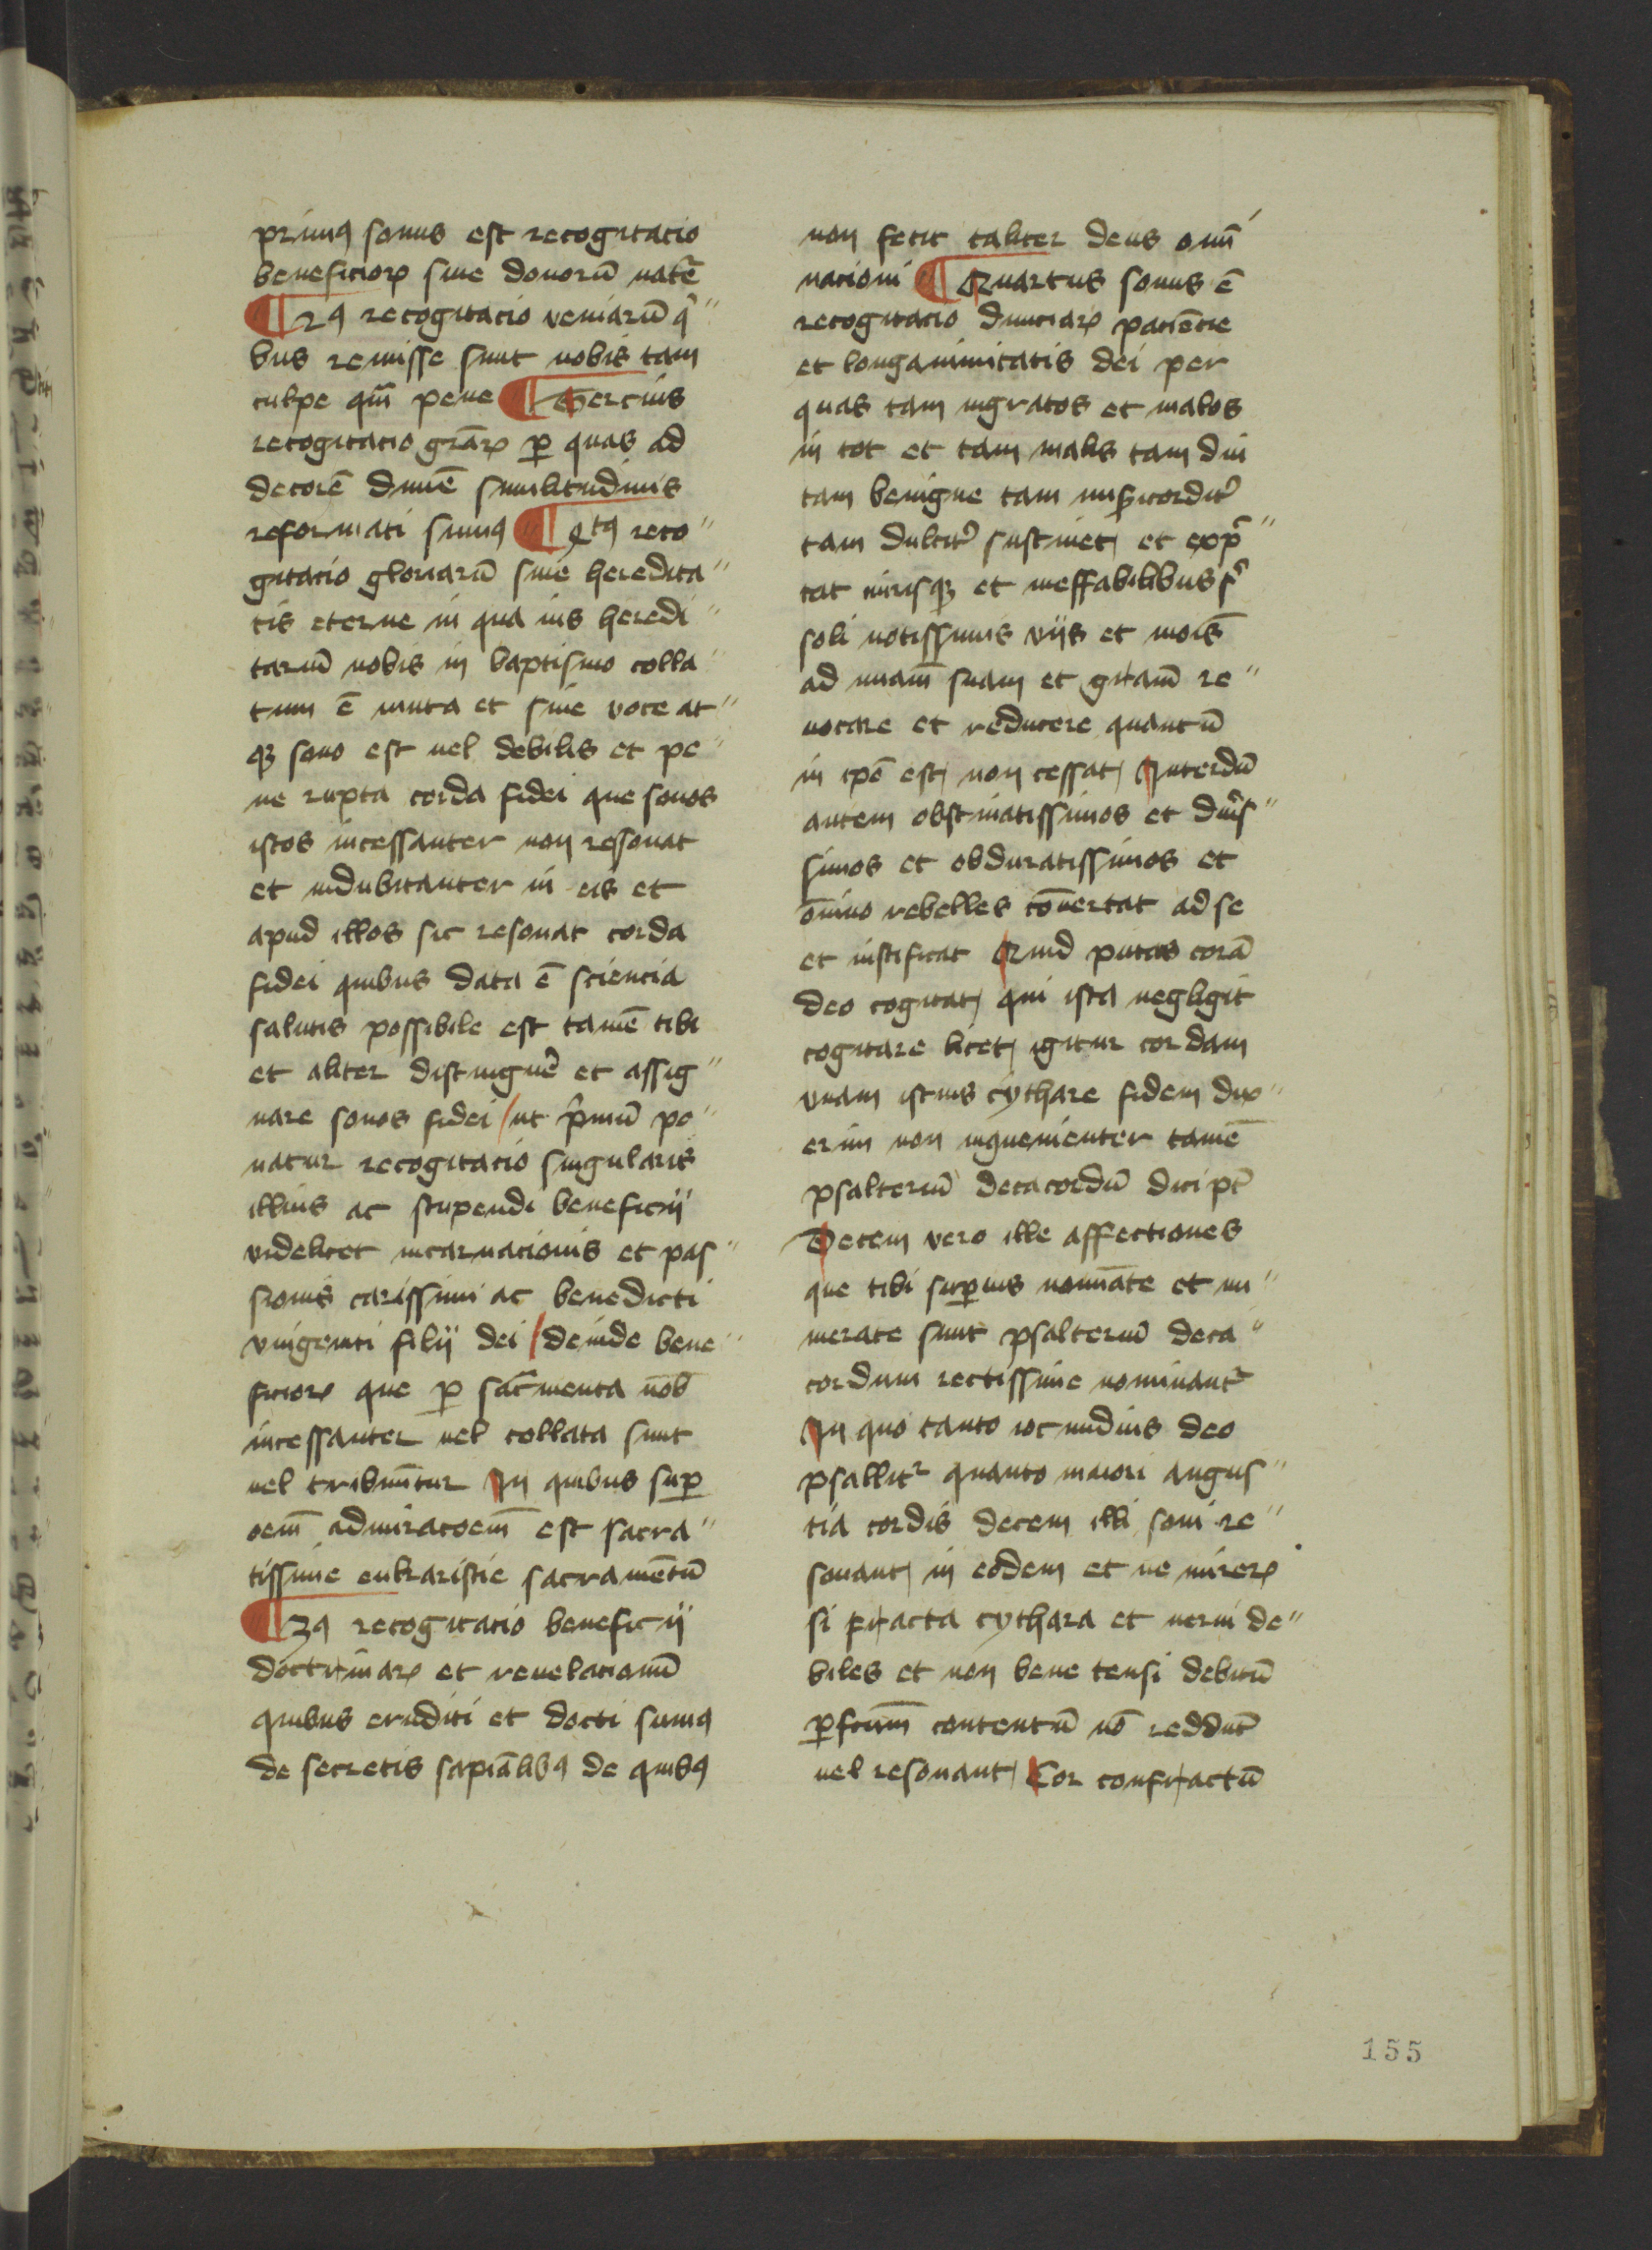 primꝯ sonus est recogitacio
beneficioꝝ siue donorū natr̄e
¶ 2ꝯ recogitacio veniarū qͥ
bus remisse sunt nobis tam
culpe qm̄ pene ¶ Tercius
recogitacio grāꝝ ꝑ quas ad
decorē diuīe similitudinis
reformati sumꝯ ¶ 4tꝯ reco
gitacio gloriarū siue heredita
tis eterne in qua ius heredi
tariū nobis in baptismo colla
tum ē muta et sine voce at
qꝫ sono est uel debilis et pe
ne rupta corda fidei que sonos
istos incessanter non resonat
et indubitanter in eis et
apud illos sic resonat corda
fidei quibus data ē sciencia
salutis possibile est tamē tibi
et aliter distinguē et assig
nare sonos fidei / ut pͥmū po
natur recogitacio singularis
illius ac stupendi beneficij
videlicet incarnacionis et pas
sionis carissimi ac benedicti
vnigeniti filij dei / deinde bene
ficioꝝ que ꝑ sacr̄menta nob̄
incessanter uel collata sunt
uel tribuūtur In quibus suꝑ
oem̄ admiracoem̄ est sacra
tissime eukaristie sacramētū
¶ 3ꝯ recogitacio beneficij
doctrinaꝝ et reuelacionū
quibus eruditi et docti sumꝯ
de secretis sapiālibꝯ de quibꝯ
non fecit taliter deus omī
nacioni ¶ Quartus sonus ē
recogitacio diuiciaꝝ paciēcie
et longanimitatis dei per
quas tam ingratos et malos
in tot et tam malis tam diu
tam benigne tam misꝑicorditͬ
tam dulcitͬ sustinet et expͨ
tat mirisqꝫ et ineffabilibus sͥ
soli notissimis vijs et mois̄
ad uiam̄ suam et gr̄iam̄ re
uocare et reducere quantū
in ipō est non cessat Interdū
autem obstinatissimos et dur̄is
simos et obduratissimos et
ōnino rebelles cōuertat ad se
et iustificat Quid putas corā
deo cogitat qui ista negligit
cogitare licet igitur cordam
vnam istius cythare fidem dix
erim non inꝯuenienter tamē
psalteriū decacordū dici pt̄
Decem vero ille affectiones
que tibi suꝑius nomīate et nu
merate sunt psalteriū deca
cordum rectissime nominantͬ
In quo tanto iocundius deo
psallitͬ quanto maiori angus
tia cordis decem illi soni re
sonant in eodem et ne mireꝝ
si fracta cythara et nerui de
biles et non bene tensi debitū
ꝑfc̄um̄ contentū nō reddūt
uel resonant Cor confractū
155